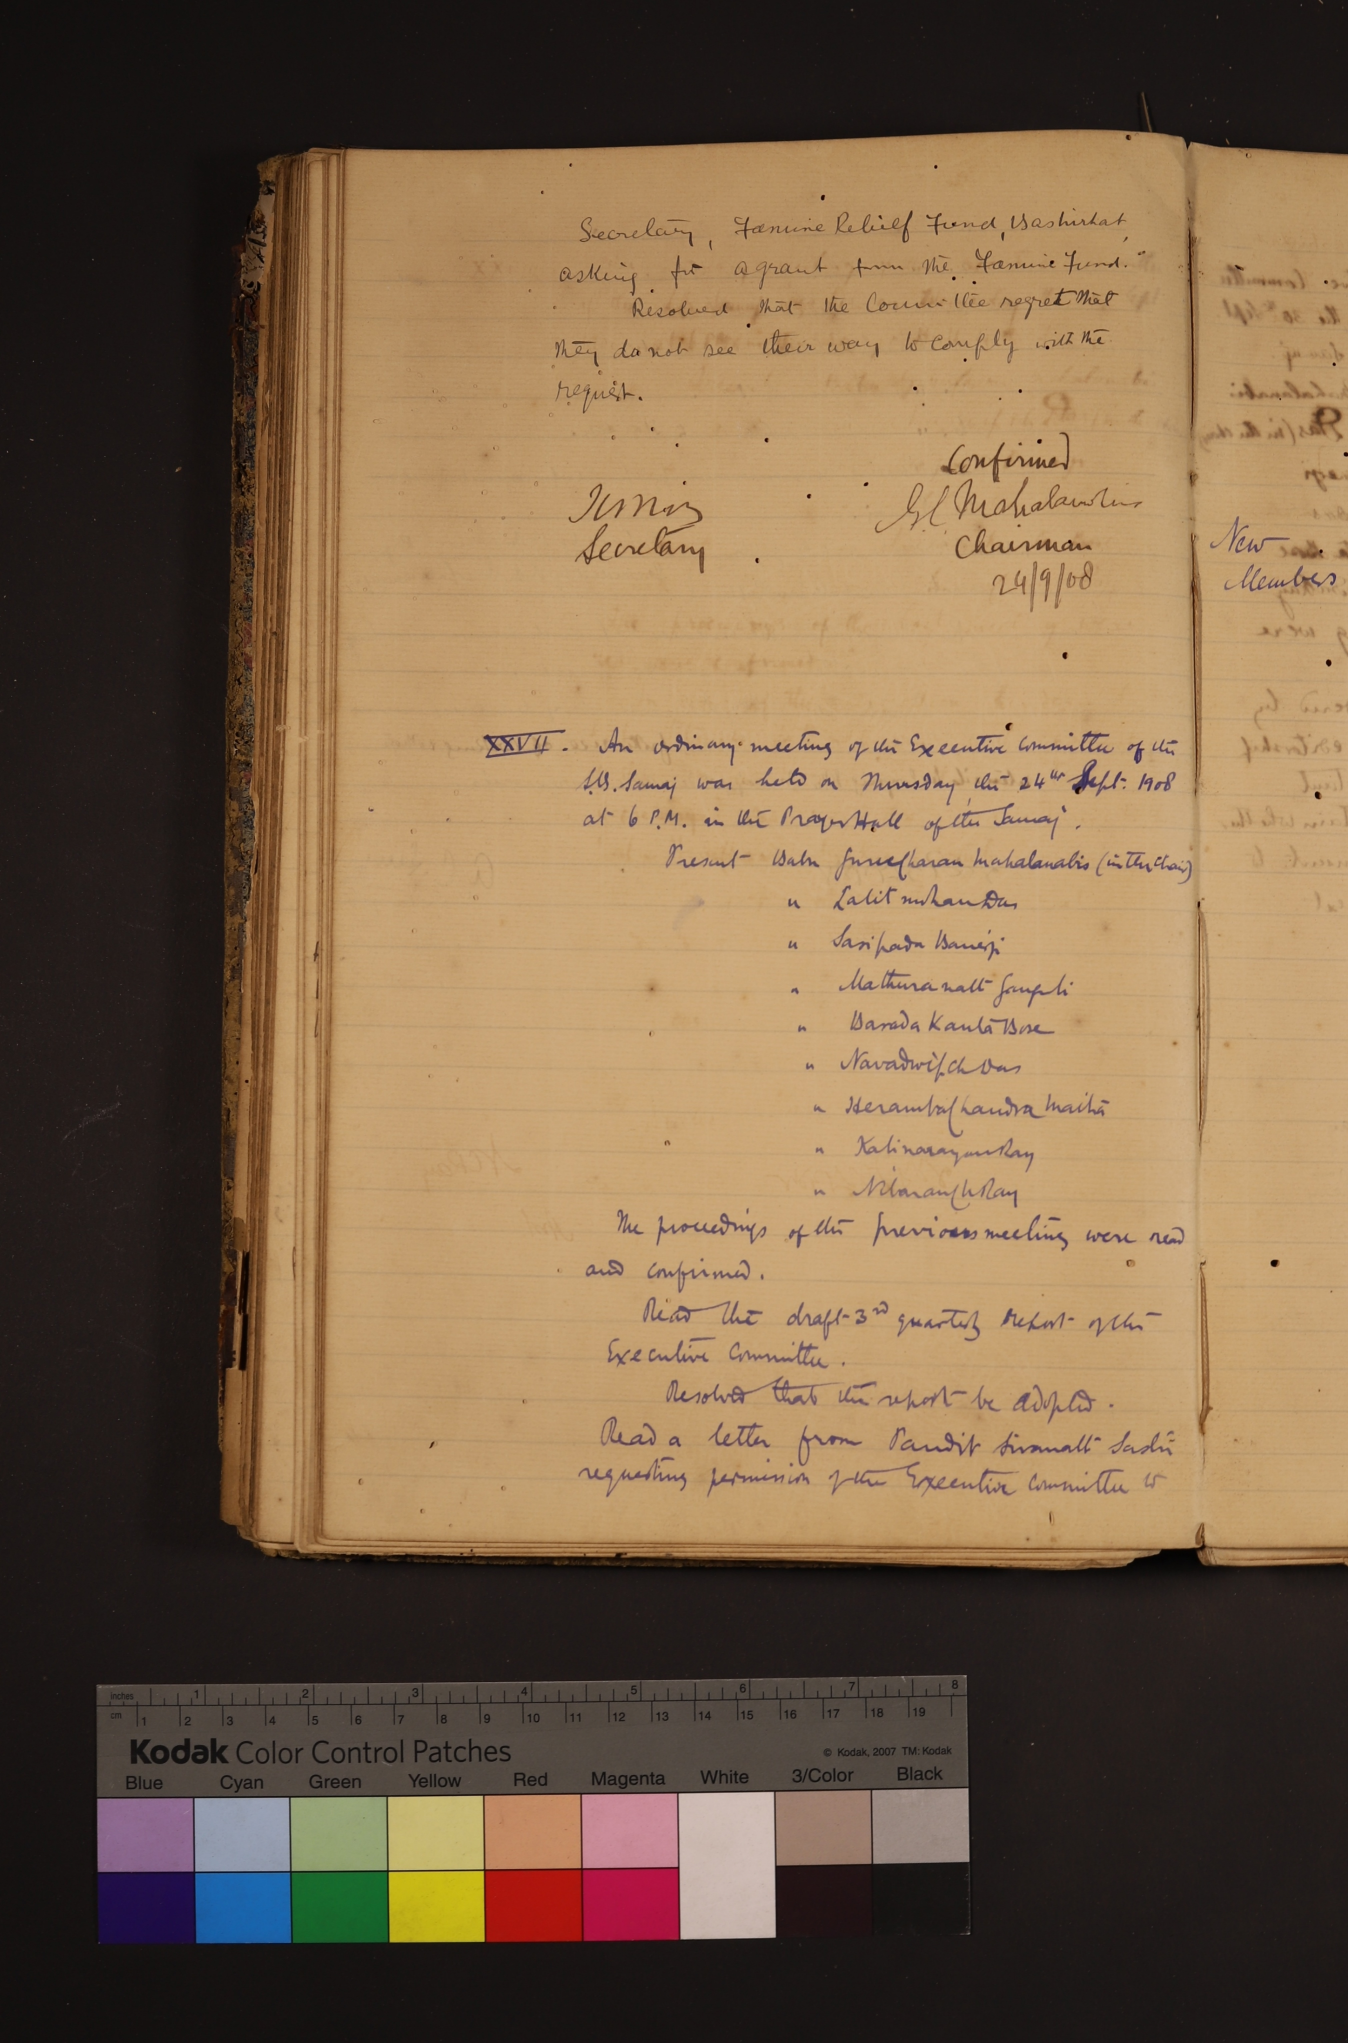 Secretary, Famine Relief Fund, Bashirhat,
asking for a grant from the Famine Fund.
Resolved that the Committee regret that
they do not see their way to comply with the
request.
Confirmed
G C Mahalanobis
Secretary
Chairman
24/9/08
New
Members
XXVII. An ordinary meeting of the Executive Committee of the
S.B. Samaj was held on Thursday, the 24th Sept. 1908
at 6 P.M. in the Prayer Hall of the Samaj.
Present Babu Guru Charan Mahalanabis (in the chair)
" Lalit mohan Das
" Sasipada Banerji
" Mathura nath Ganguli
" Barada Kanta Bose
" Navadwip Ch Das
" Heramba Chandra Maitra
" Kalinarayan Ray
" Nibaran Ch Ray
The proceedings of the previous meeting were read
and confirmed.
Read the draft 3rd quarterly report of the
Executive Committee.
Resolved that the report be adopted.
Read a letter from Pandit Sivanath Sastri
requesting permission of the Executive Committee to
inches 1 2 3 4 5 6 7 8
cm 1 2 3 4 5 6 7 8 9 10 11 12 13 14 15 16 17 18 19
Kodak Color Control Patches © Kodak, 2007 TM: Kodak
Blue Cyan Green Yellow Red Magenta White 3/Color Black